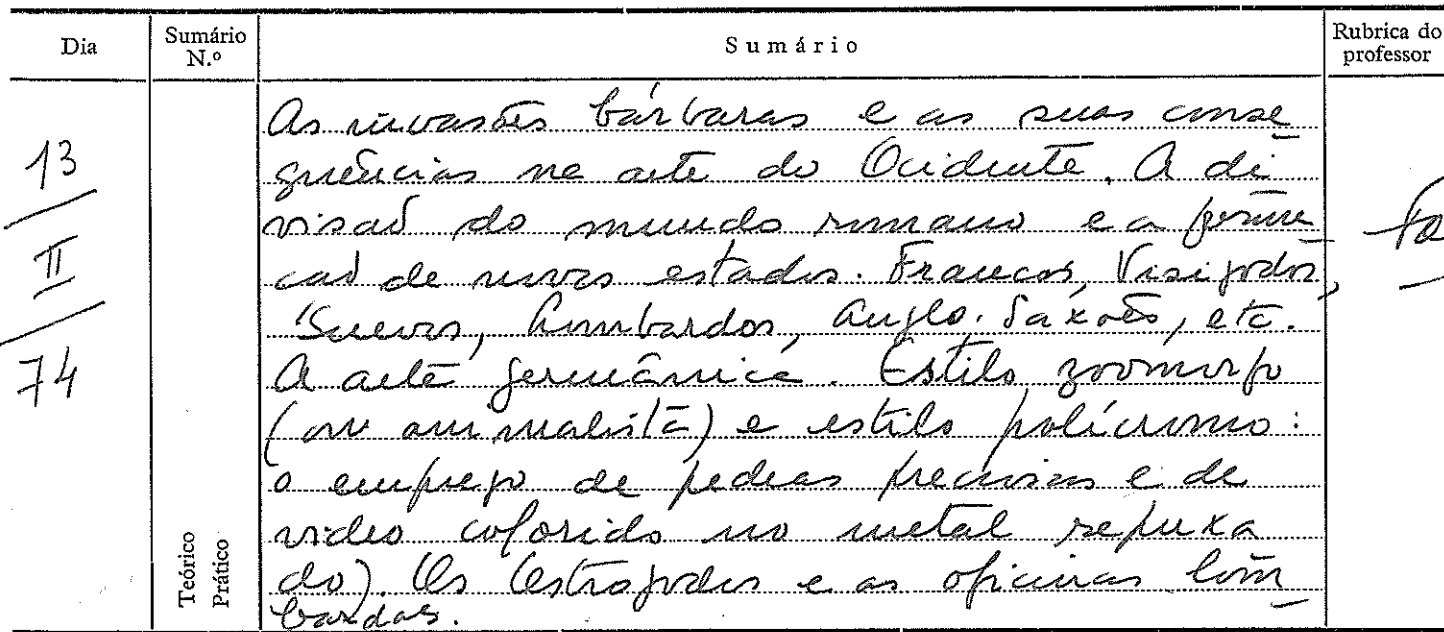 Dia
Sumário N.º
Sumário
Rubrica do professor
13
II
74
As invasões bárbaras e as suas conse
quências na arte do Ocidente. A di
visão do mundo romano e a forma
ção de novos estados. Francos, Visigodos,
Suevos, Lombardos, Anglo-Saxões, etc.
A arte germânica. Estilo zoomorfo
(ou animalista) e estilo polícromo:
o emprego de pedras preciosas e de
vidro colorido no metal repuxa
do). Os Ostrogodos e as oficinas lom
bardas.
Teórico
Prático